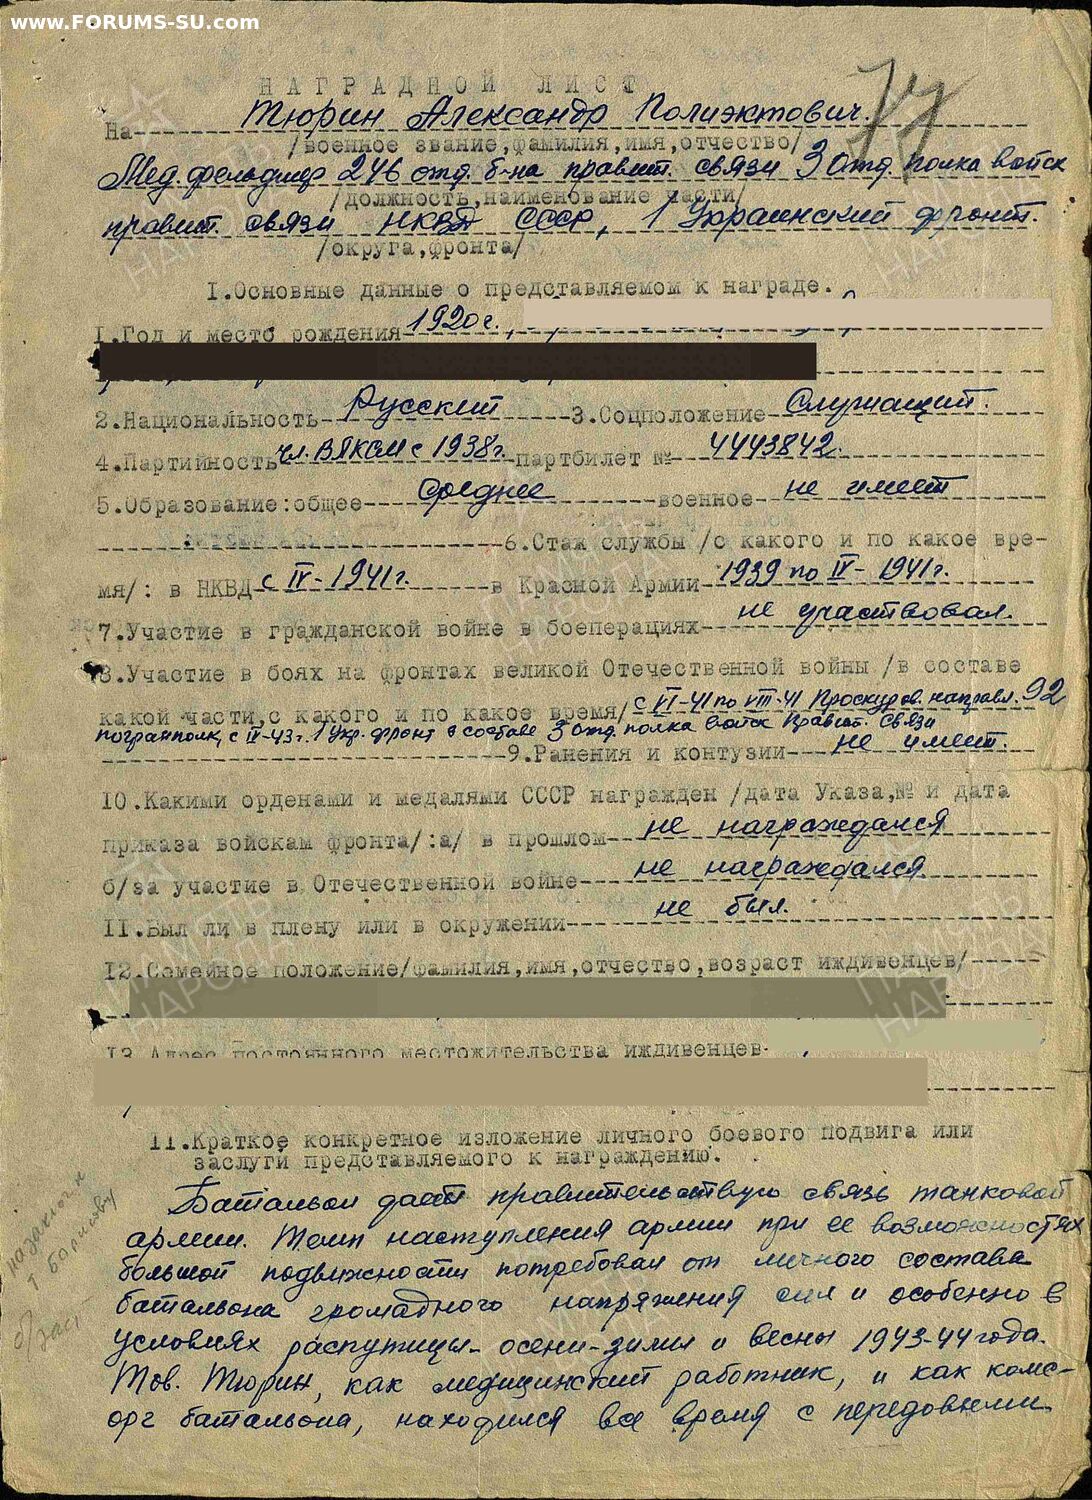 www.FORUMS-SU.com
НАГРАДНОЙ ЛИСТ
77
На Тюрин Александр Полиэктович.
/военное звание,фамилия,имя,отчество/
Мед. фельдшер 246 отд. б-на правит. связи 3 отд. полка войск
/должность,наименование части/
правит. связи НКВД СССР, 1 Украинский фронт.
/округа,фронта/
I.Основные данные о представляемом к награде.
I.Год и место рождения 1920 г.,
2.Национальность Русский 3.Соцположение Служащий.
4.Партийность чл. ВЛКСМ с 1938 г. партбилет № 4443842.
5.Образование:общее среднее военное не имеет
6.Стаж службы /с какого и по какое вре-
мя/: в НКВД с IV-1941 г. в Красной Армии 1939 по IV-1941 г.
7.Участие в гражданской войне в боеперациях не участвовал.
8.Участие в боях на фронтах великой Отечественной войны /в составе
какой части,с какого и по какое время/ с VI-41 по VIII-41 Проскуров. направл. 92
погранполк, с IV-43 г. 1 Укр. фронт в составе 3 отд. полка войск Правит. Связи
9.Ранения и контузии не имеет.
10.Какими орденами и медалями СССР награжден /дата Указа,№ и дата
приказа войскам фронта/:а/ в прошлом не награждался
б/за участие в Отечественной войне не награждался
11.Был ли в плену или в окружении не был.
12.Семейное положение/фамилия,имя,отчество,возраст иждивенцев/
13.Адрес постоянного местожительства иждивенцев
11.Краткое конкретное изложение личного боевого подвига или
заслуги представляемого к награждению.
Батальон дает правительствую связь танковой
армии. Темп наступления армии при ее возможностях
большой подвижности потребовал от личного состава
батальона громадного напряжения сил и особенно в
условиях распутицы осени-зимы и весны 1943-44 года.
Тов. Тюрин, как медицинский работник, и как комс-
орг батальона, находился все время с передовыми